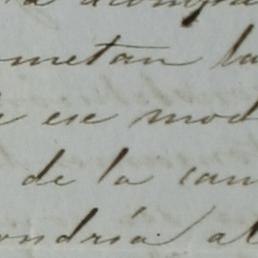 ometan la
e ese mod
de la cam
ondría al